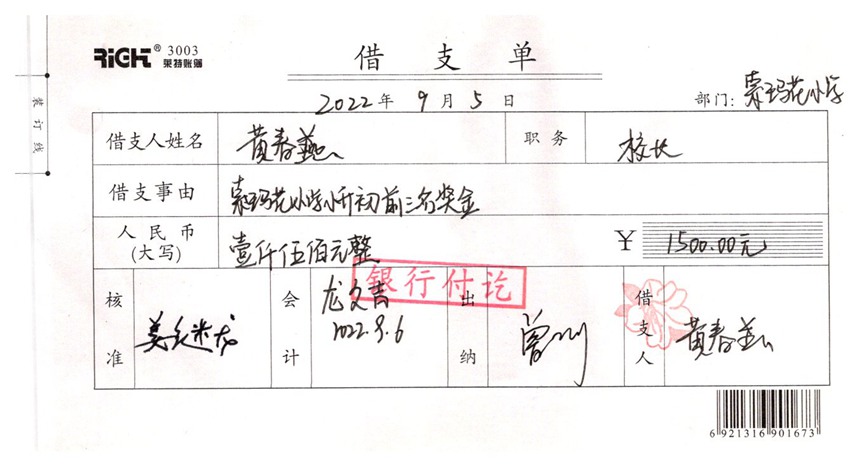 RiGHT® 3003
莱特账簿
借支单
2022年 9月 5日
部门: 索玛花小学
装订线
借支人姓名 黄春燕 职务 校长
借支事由 索玛花小学小升初前三名奖金
人民币(大写) 壹仟伍佰元整 ¥ 1500.00元
银行付讫
核准 会计 龙文吉 出纳 借支人 黄春燕
2022.9.6
6 921316 901673